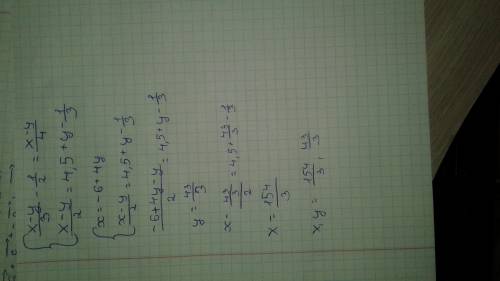 { (x-y)/3 - 1/2 = (x-y)/4
(x-y)/2 = 4,5+y-1/3
{ x=-6+4y
(x-y)/2 = 4,5+y-1/3
(-6+4y-y)/2 = 4,5+y-1/3
y = 43/3
(x-43/3)/2 = 4,5+43/3-1/3
x = 154/3
x,y = 154/3, 43/3